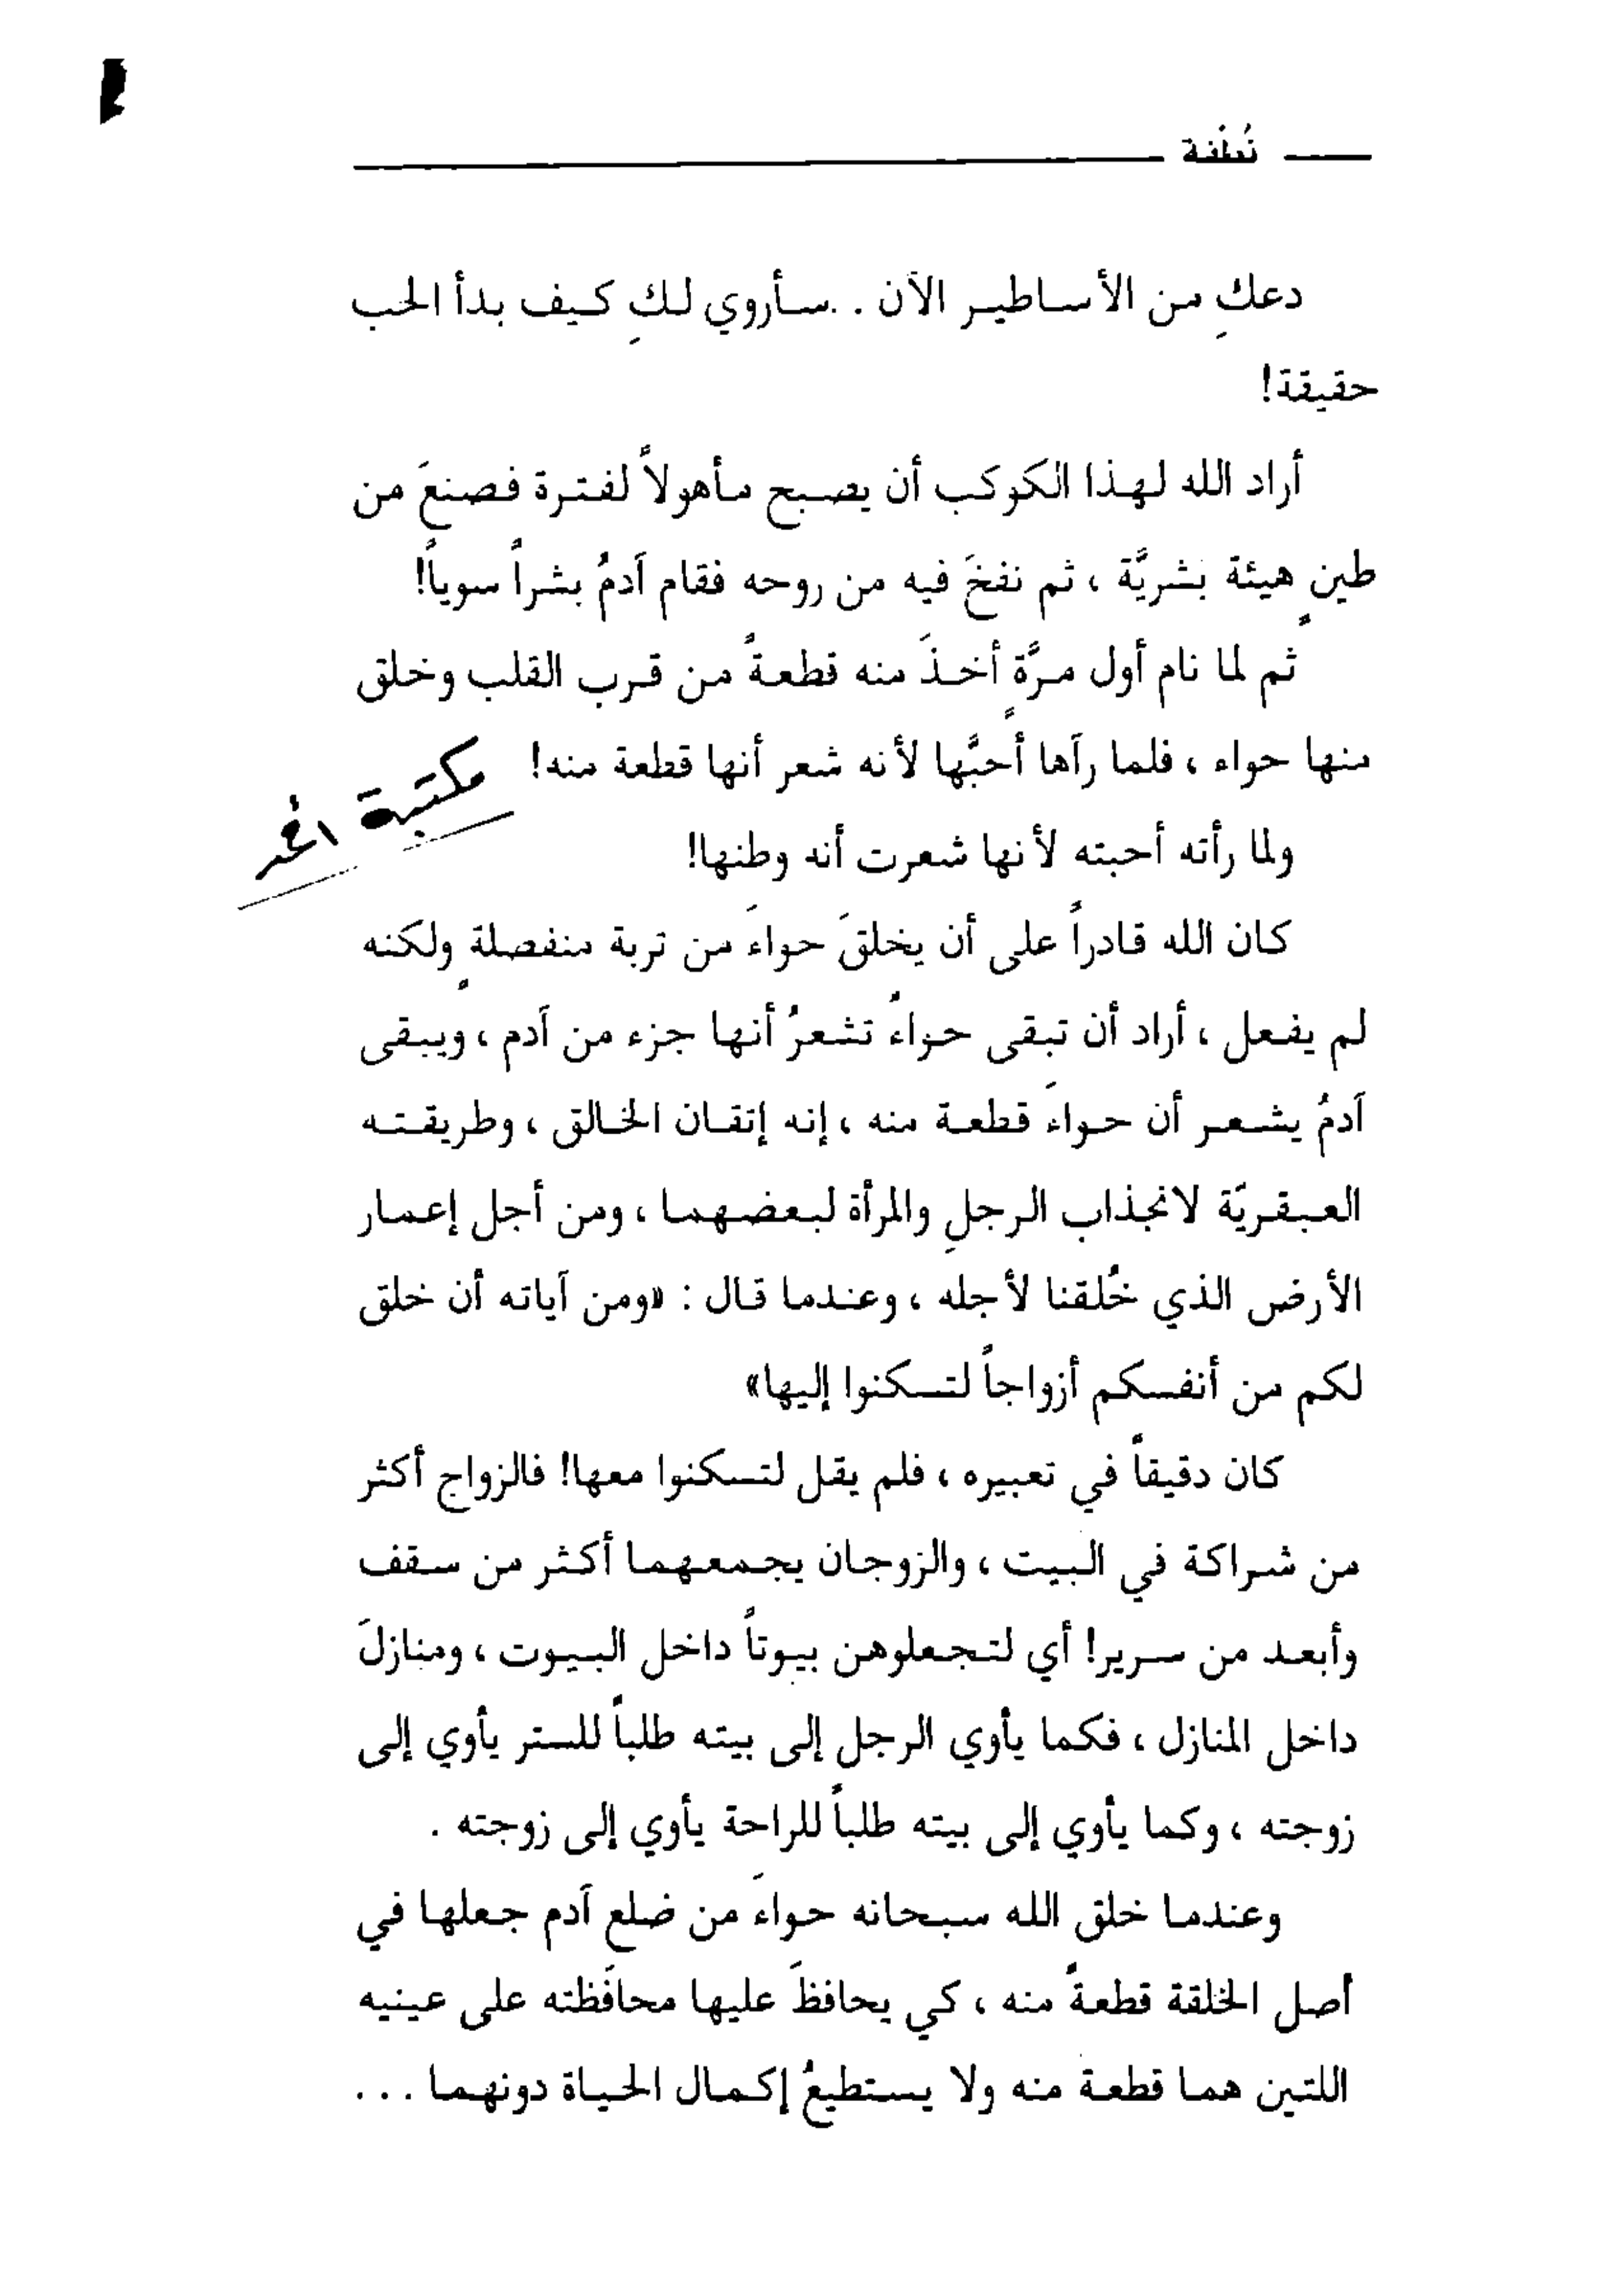 نُطْفة
دعكِ من الأساطير الآن . . سأروي لكِ كيف بدأ الحب
حقيقة!
أراد الله لهذا الكوكب أن يصبح مأهولاً لفترة فصنعَ من
طينٍ هيئة بشريَّة ، ثم نفخَ فيه من روحه فقام آدمُ بشراً سوياً!
ثم لما نام أول مرَّةٍ أخذَ منه قطعةً من قرب القلب وخلق
منها حواء ، فلما رآها أحبَّها لأنه شعر أنها قطعة منه!
مكتبة
ولما رأته أحبته لأنها شعرت أنه وطنها!
كان الله قادراً على أن يخلقَ حواءَ من تربة منفصلةٍ ولكنه
لم يفعل ، أراد أن تبقى حواءُ تشعرُ أنها جزء من آدم ، ويبقى
آدمُ يشعر أن حواءَ قطعة منه ، إنه إتقان الخالق ، وطريقته
العبقريّة لانجذاب الرجلِ والمرأة لبعضهما ، ومن أجل إعمار
الأرض الذي خُلقنا لأجله ، وعندما قال : «ومن آياته أن خلق
لكم من أنفسكم أزواجاً لتسكنوا إليها»
كان دقيقاً في تعبيره ، فلم يقل لتسكنوا معها! فالزواج أكثر
من شراكة في البيت ، والزوجان يجمعهما أكثر من سقف
وأبعد من سرير! أي لتجعلوهن بيوتاً داخل البيوت ، ومنازلَ
داخل المنازل ، فكما يأوي الرجل إلى بيته طلباً للستر يأوي إلى
زوجته ، وكما يأوي إلى بيته طلباً للراحة يأوي إلى زوجته .
وعندما خلق الله سبحانه حواءَ من ضلع آدم جعلها في
أصل الخلقة قطعةً منه ، كي يحافظَ عليها محافَظته على عينيه
اللتين هما قطعة منه ولا يستطيعُ إكمال الحياة دونهما . . .